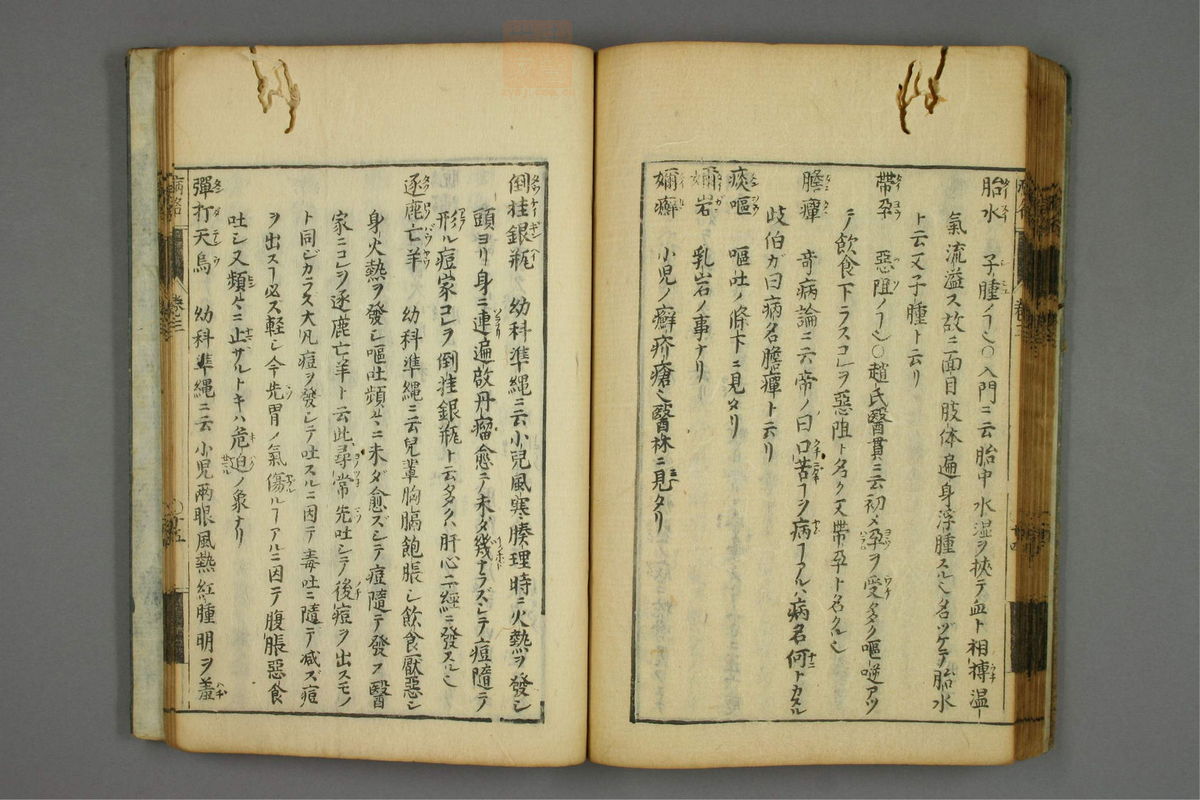 胎水 子腫ノヿ也○入門ニ云胎中水湿ヲ挾テ血ト相搏湿
氣流溢ス故ニ面目肢体遍身浮腫スル也名ヅケテ胎水
ト云又子腫ト云リ
帶孕 惡阻ノヿ也○趙氏醫貫ニ云初メ孕ヲ受多ク嘔逆アツ
テ飲食下ラスコレヲ惡阻ト名ク又帶孕ト名クル也
膽癉 奇病論ニ云帝ノ曰口苦ヿヲ病ヿアルハ病名何トカスル
歧伯ガ曰病名膽癉ト云リ
痰嘔 嘔吐ノ條下ニ見タリ
嬭岩 乳岩ノ事ナリ
嬭癬 小児ノ癬疥瘡也醫林ニ見タリ
倒挂銀瓶 幼科準縄ニ云小兒風寒腠理時ニ火熱ヲ發シ
頭ヨリ身ニ連遍啟丹瘤愈テ未ダ幾ナラズシテ痘隨テ
形ル痘家コレヲ倒挂銀瓶ト云多クハ肝心二經ニ發スル也
逐鹿亡羊 幼科準縄ニ云兒輩胸膈飽脹シ飲食厭惡シ
身火熱ヲ發シ嘔吐頻ニ未ダ愈ズシテ痘隨テ發ス醫
家ニコレヲ逐鹿亡羊ト云此尋常先吐シテ後痘ヲ出スモノ
ト同ジカラス大凡痘ヲ發シテ吐スルニ因テ毒吐ニ隨テ减ズ痘
ヲ出スヿ必ス軽シ今先胃ノ氣傷ルヿアルニ因テ腹脹惡食
吐シ又類ニ止ザルトキハ危迫ノ象ナリ
彈打天烏 幼科準縄ニ云小児兩眼風熱紅腫明ヲ羞
病名 卷三